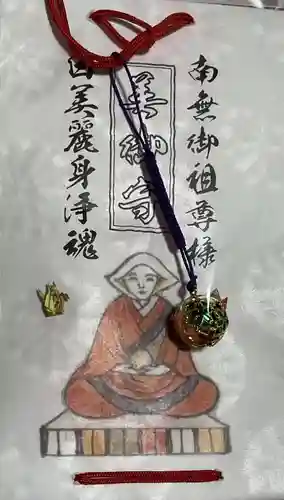 南無御祖尊様
美御守
美麗身浄魂